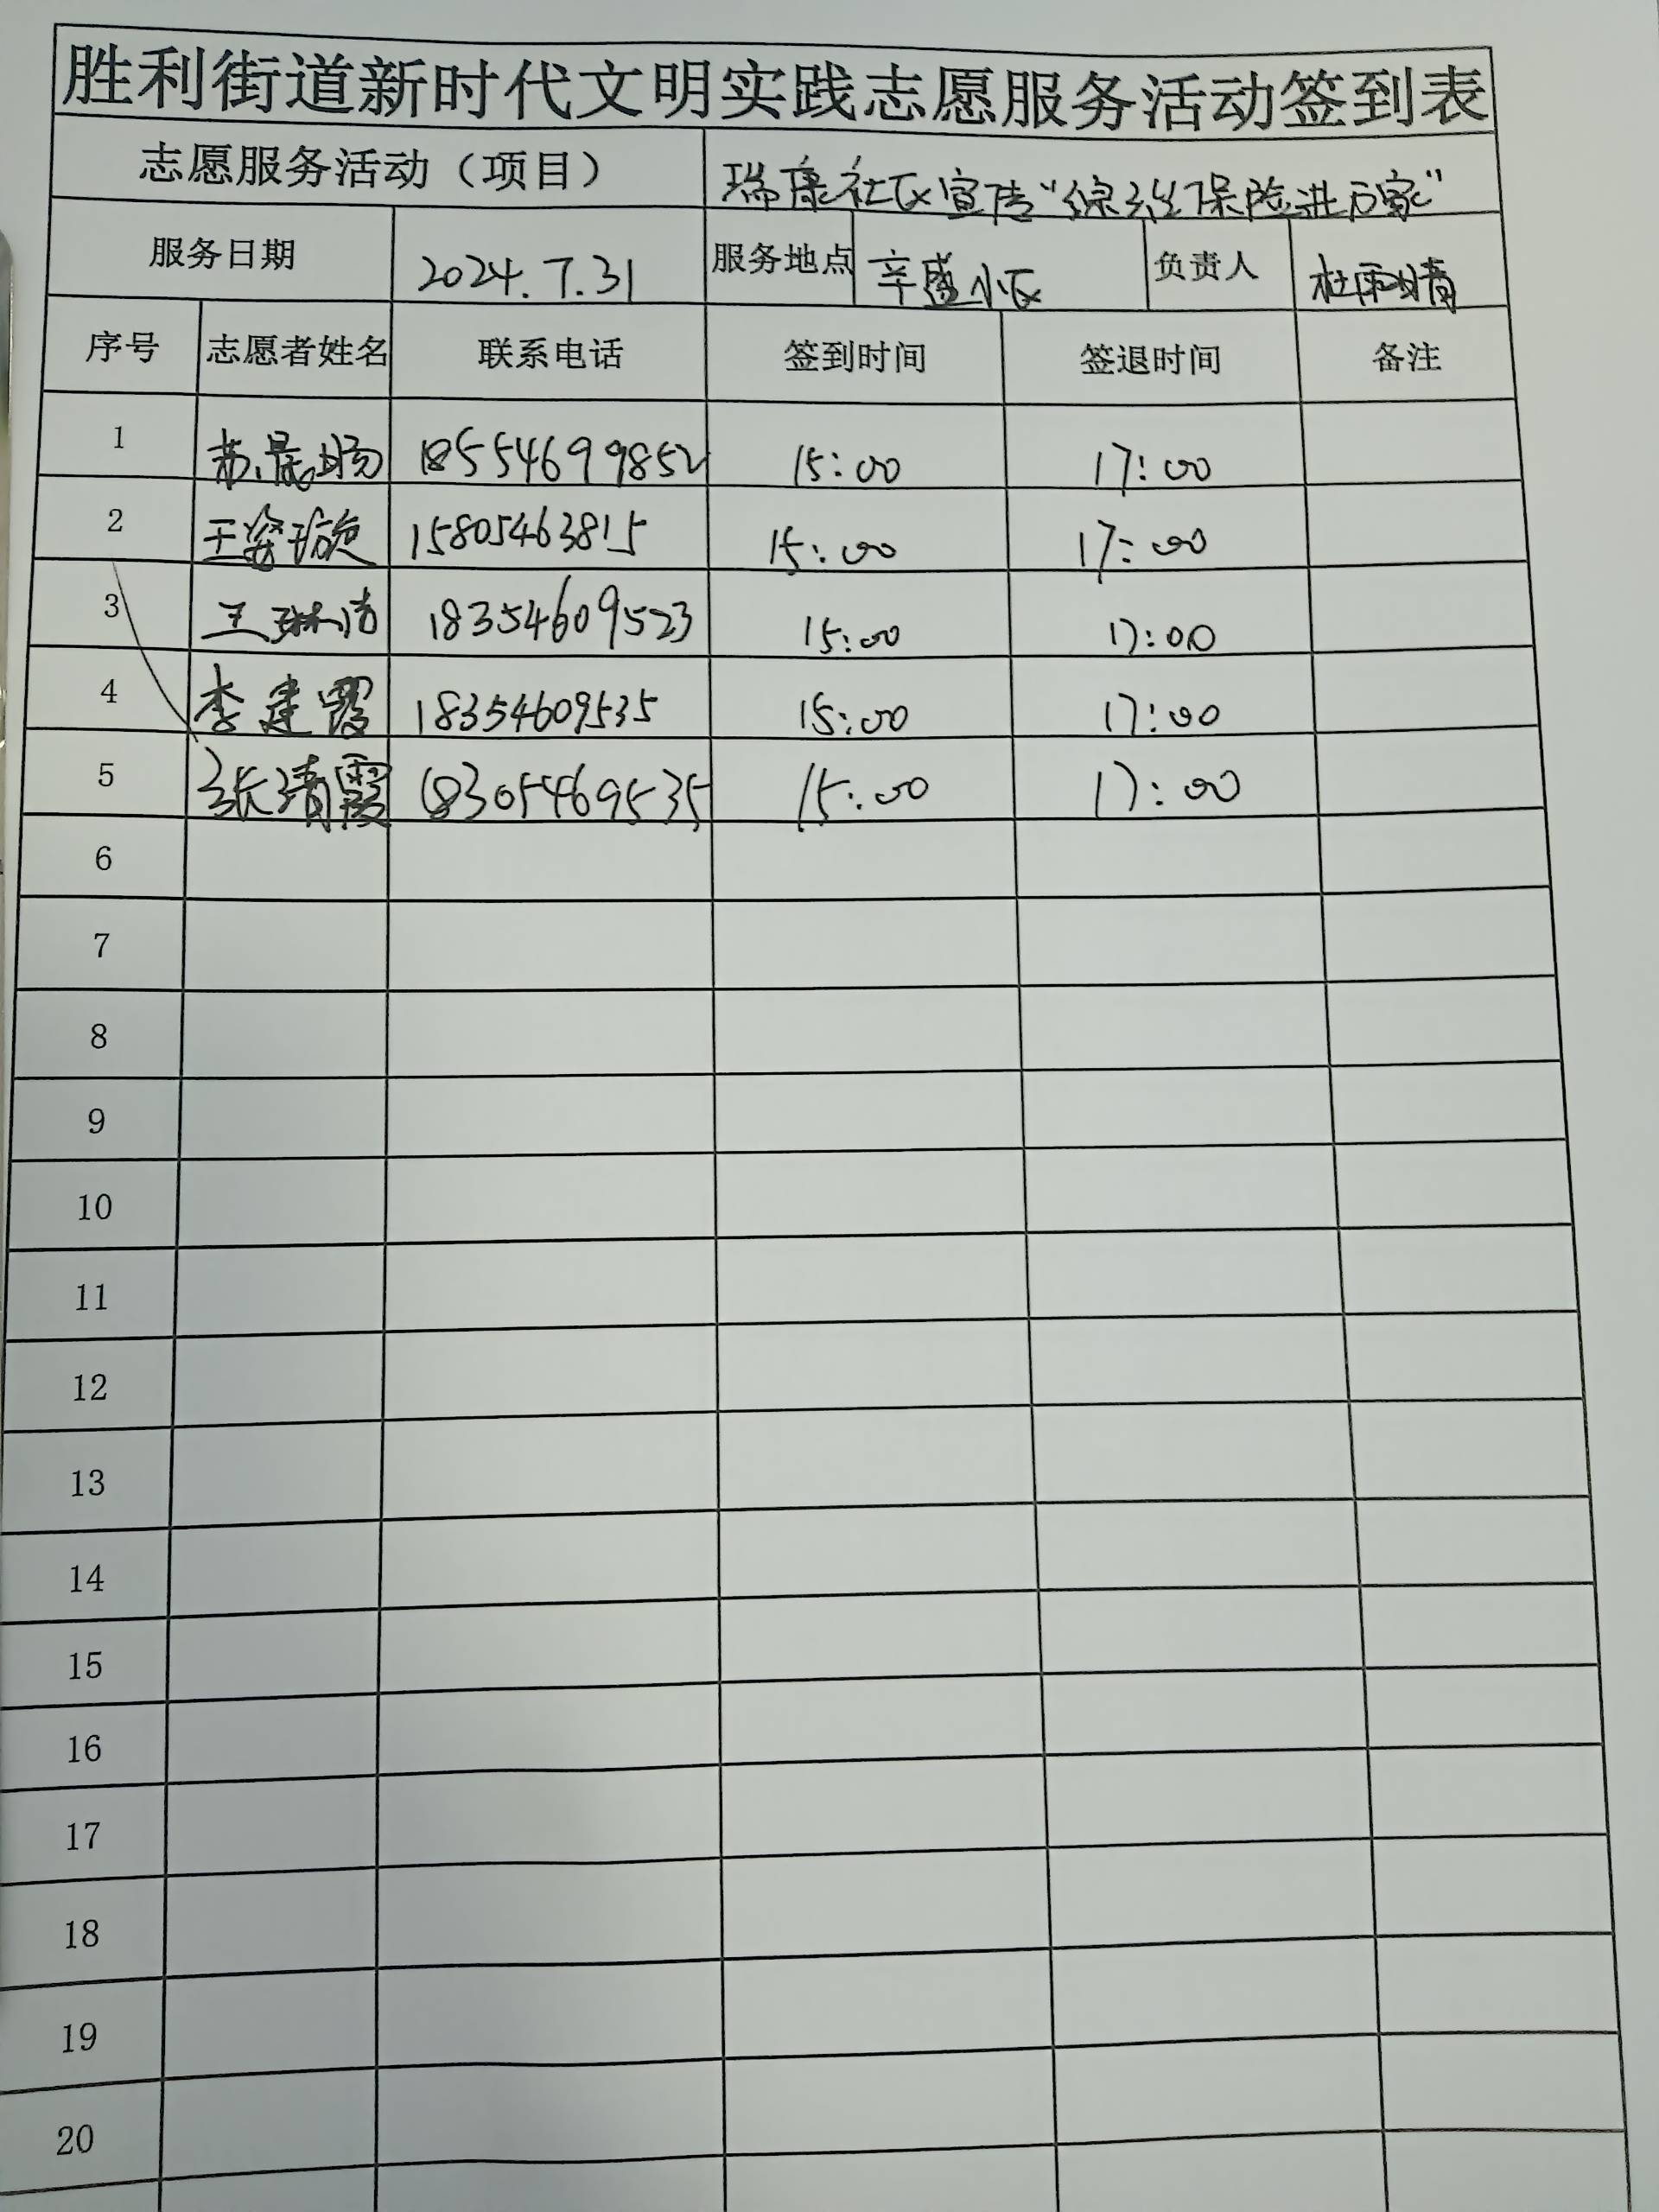 胜利街道新时代文明实践志愿服务活动签到表
志愿服务活动（项目） 瑞康社区宣传“综治保险进万家”
服务日期 2024.7.31 服务地点 辛盛小区 负责人 杜雨晴
序号 志愿者姓名 联系电话 签到时间 签退时间 备注
1 苏晨旸 18554699852 15:00 17:00
2 王梁璇 15805463815 15:00 17:00
3 王琳洁 18354609523 15:00 17:00
4 李建霞 18354609535 15:00 17:00
5 张清霞 18305469535 15:00 17:00
6
7
8
9
10
11
12
13
14
15
16
17
18
19
20